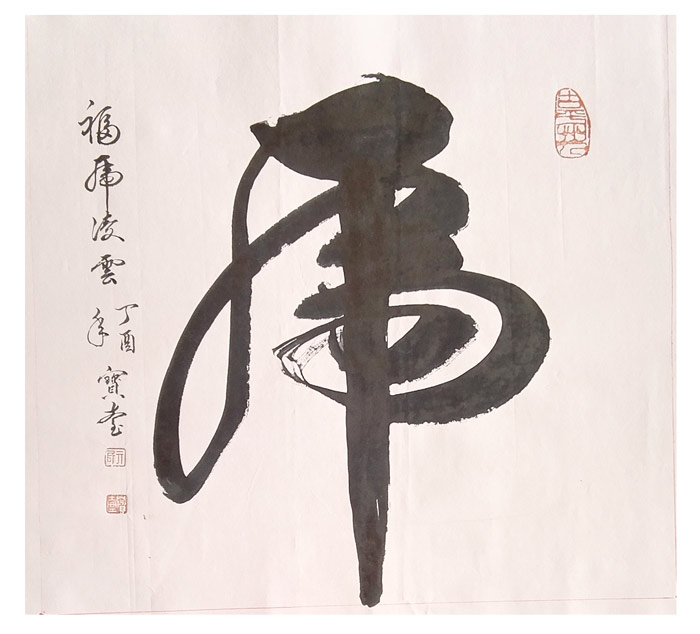 虎
福虎凌雲
丁酉
年
寶